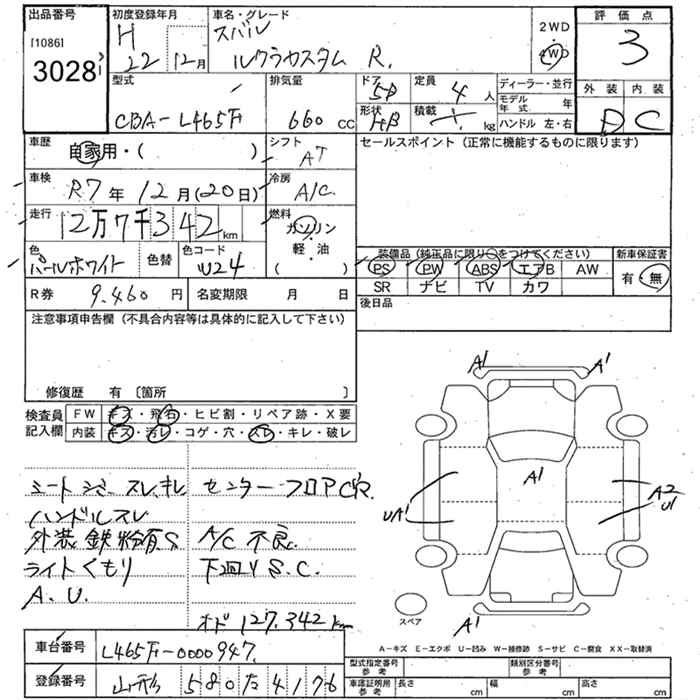 出品番号
[1086]
3028
初度登録年月
H
22 12月
車名・グレード
スバル
ルクラカスタム R.
2WD
・
4WD
評価点
3
外装 内装
D C
型式
CBA-L465F
排気量
660 cc
ドア
5D
形状
HB
定員
4 人
積載
kg
ディーラー・並行
モデル年式 年
ハンドル 左・右
車歴
自家用・( )
シフト
AT
セールスポイント(正常に機能するものに限ります)
車検
R7年12月(20日)
冷房
A/C
走行
12万7千342km
燃料
ガソリン
軽・油
( )
色
パールホワイト
色替
色コード
W24
装備品(純正品に限り○をつけてください)
PS PW ABS エアB AW
SR ナビ TV カワ
新車保証書
有・無
R券 9.460円
名変期限 月 日
後日品
注意事項申告欄(不具合内容等は具体的に記入して下さい)
修復歴 有〔箇所 〕
検査員記入欄
FW キズ・飛石・ヒビ割・リペア跡・X要
内装 キズ・汚レ・コゲ・穴・スレ・キレ・破レ
シートシミ スレ.キレ
ハンドルスレ
外装 鉄粉有.S
ライトくもり
A.U.
センターフロアP
A/C 不良
下回りS.C.
オド 127.342km
A1
A1
A1
UA1
A2
U1
A1
スペア
A-キズ E-エクボ U-凹み W-補修跡 S-サビ C-腐食 XX-取替済
車台番号 L465F-0000947
登録番号 山形 580 た 4176
型式指定番号 参考
類別区分番号 参考
車庫証明用 参考
長さ cm
幅 cm
高さ cm